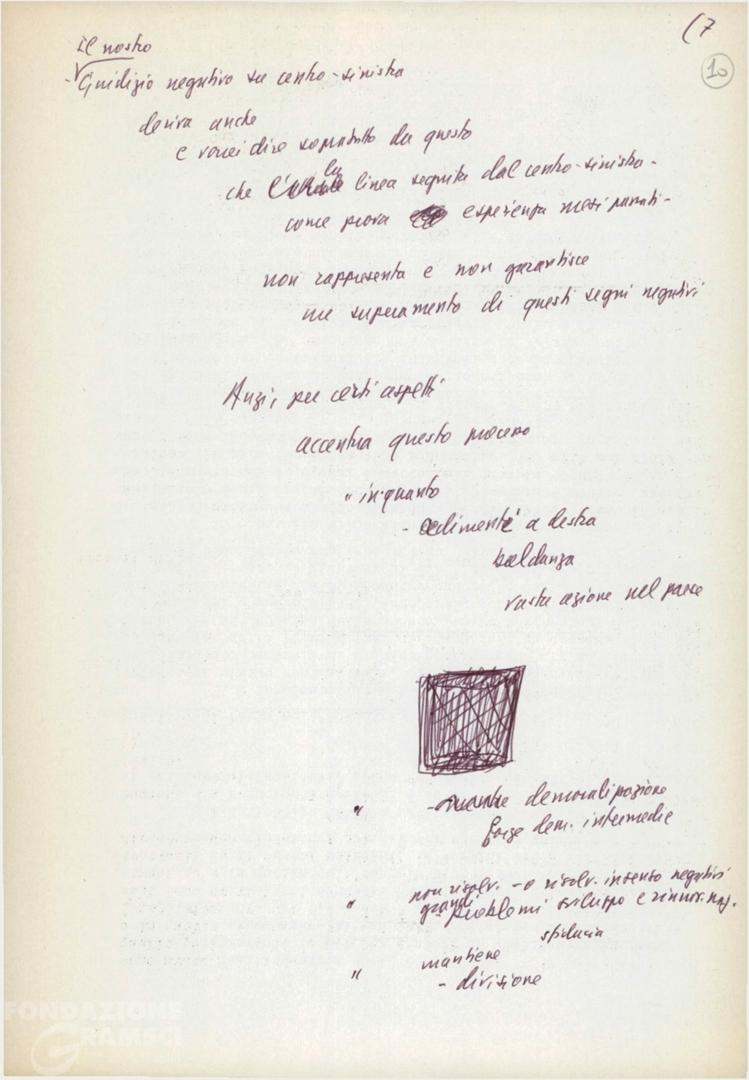 (7
10
Il nostro
- Giudizio negativo su centro-sinistra
deriva anche
e vorrei dire soprattutto da questo
che la linea seguita dal centro-sinistra -
come prova esperienza mesi passati -
non rappresenta e non garantisce
un superamento di questi segni negativi
Anzi, per certi aspetti
accentua questo processo
" in quanto
- cedimenti a destra
baldanza
vasta azione nel paese
" - demoralizzazione
forze dem. intermedie
" non risolv. - o risolv. in senso negativi
grandi problemi sviluppo e rinnov. naz.
sfiducia
" mantiene
- divisione
FONDAZIONE
GRAMSCI